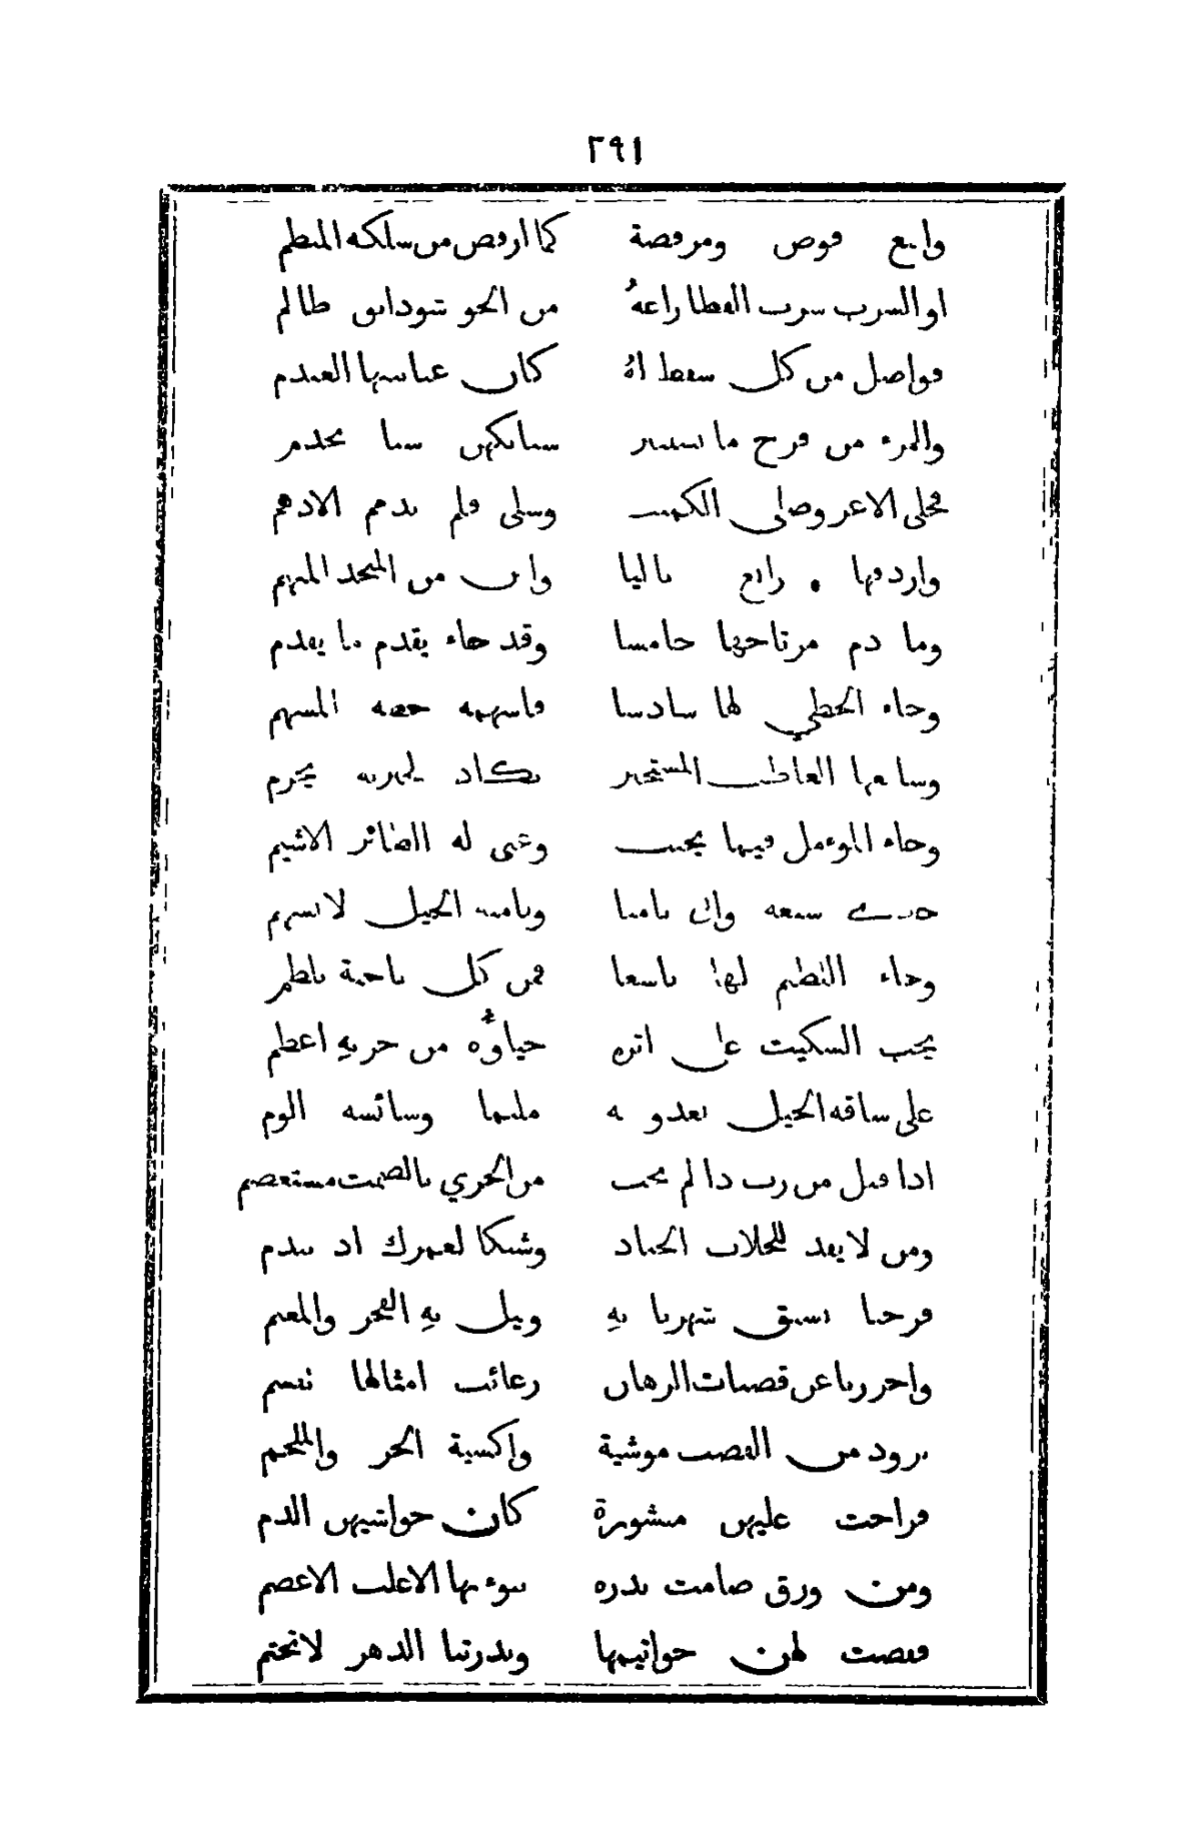 ٢٩١
وابع فوض ومرفضة كما ارفض من سلكه المنظم
او السرب سرب القطا راعهُ من الجو شوذانق طالم
فواصل من كل سقط لهُ كان عناسها العندم
والمرء من فرح ما سنابكهن سنا مخذم
فجلى الاغر وصلى الكميت وسلى فلم يذمم الادهم
واردفها رابع تاليا واين من المنجد المتهم
وما ذم مرتاحها خامسا وقد جاء يقدم ما يقدم
وجاء الحظي لها سادسا فاسهمه حصه المسهم
وسابعها العاطف المستحير يكاد لحيرته يحرم
وجاء المؤمل فيها يخيب وغنى له الطائر الاشيم
حدى سبعة واتى ثامنا وثامنة الخيل لا تسهم
وجاء اللطيم لها تاسعا فمن كل ناحية يلطم
يخب السكيت على اثره حياؤه من حربهِ اعظم
على ساقه الخيل يعدو به مليما وسائسه الوم
اذا قيل من رب ذا لم يجب من الخزي بالصمت مستعصم
ومن لا يعد للحلاب الجياد وشيكا لعمرك اذ يندم
فرحنا بسبق شهرنا بهِ ونيل بهِ الفخر والمغنم
واحرزنا عن قصبات الرهان رغائب امثالها تقسم
برود من القصب موشية واكسية الخز والملحم
فراحت عليهن منشورة كان حواشيهن الدم
ومن ورق صامت بدره ينوء بها الاغلب الاعصم
ففضت لهن خواتيمها وبدرتنا الدهر لا تختم